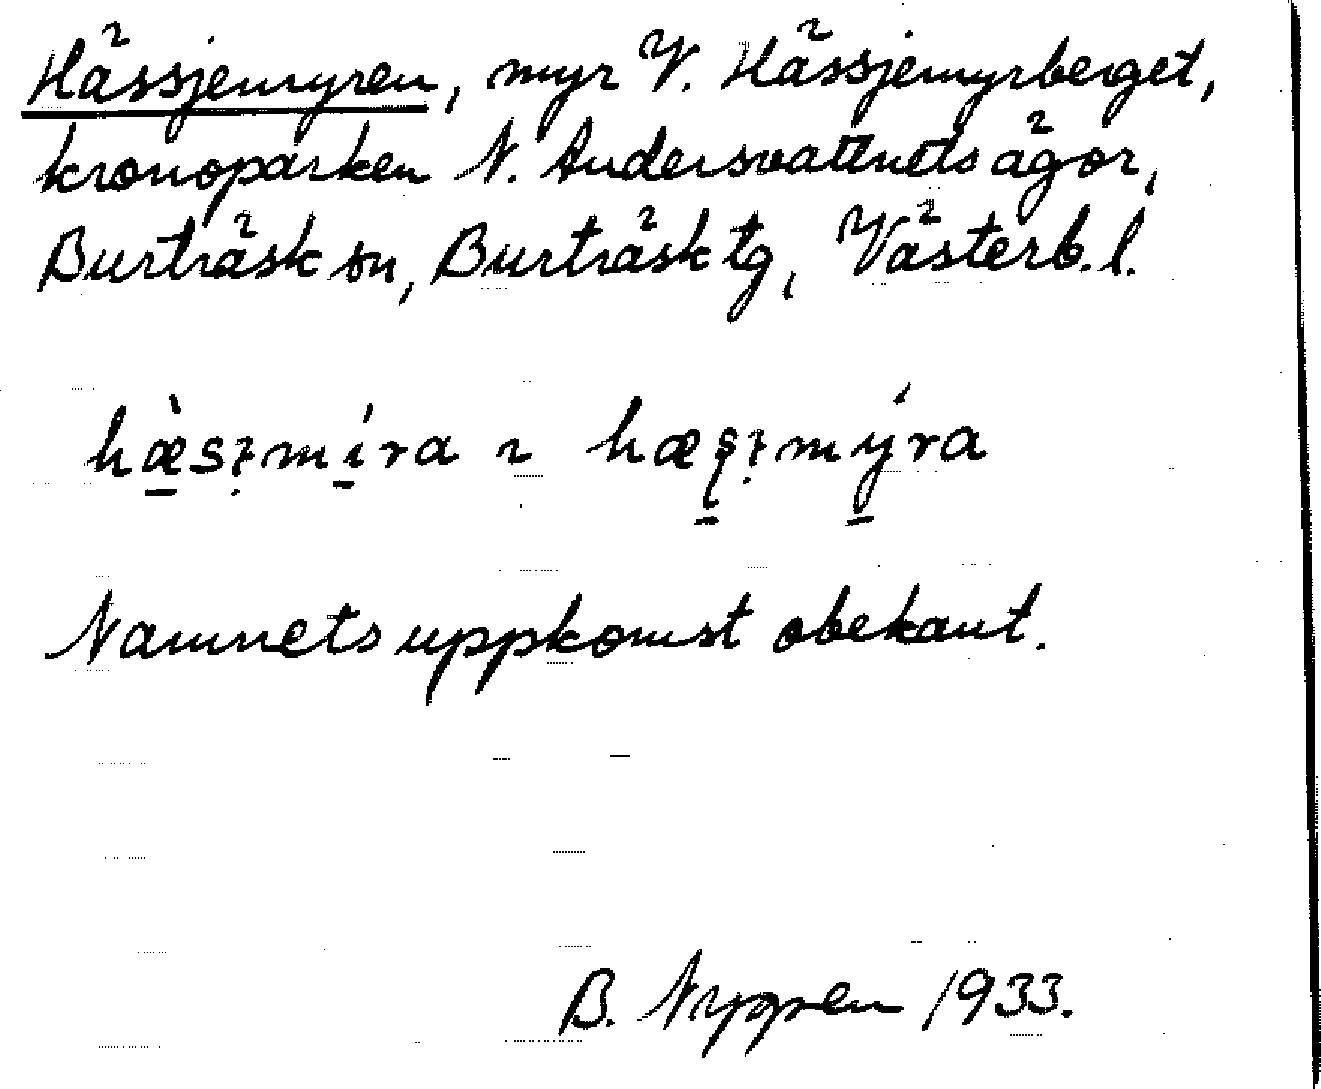 Hässjemyren, myr V. Hässjemyrberget,
kronoparken N. Andersvattnets ägor,
Burträsk sn, Burträsk tg, Västerb. l.
Namnets uppkomst obekant.
B. Nygren 1933.